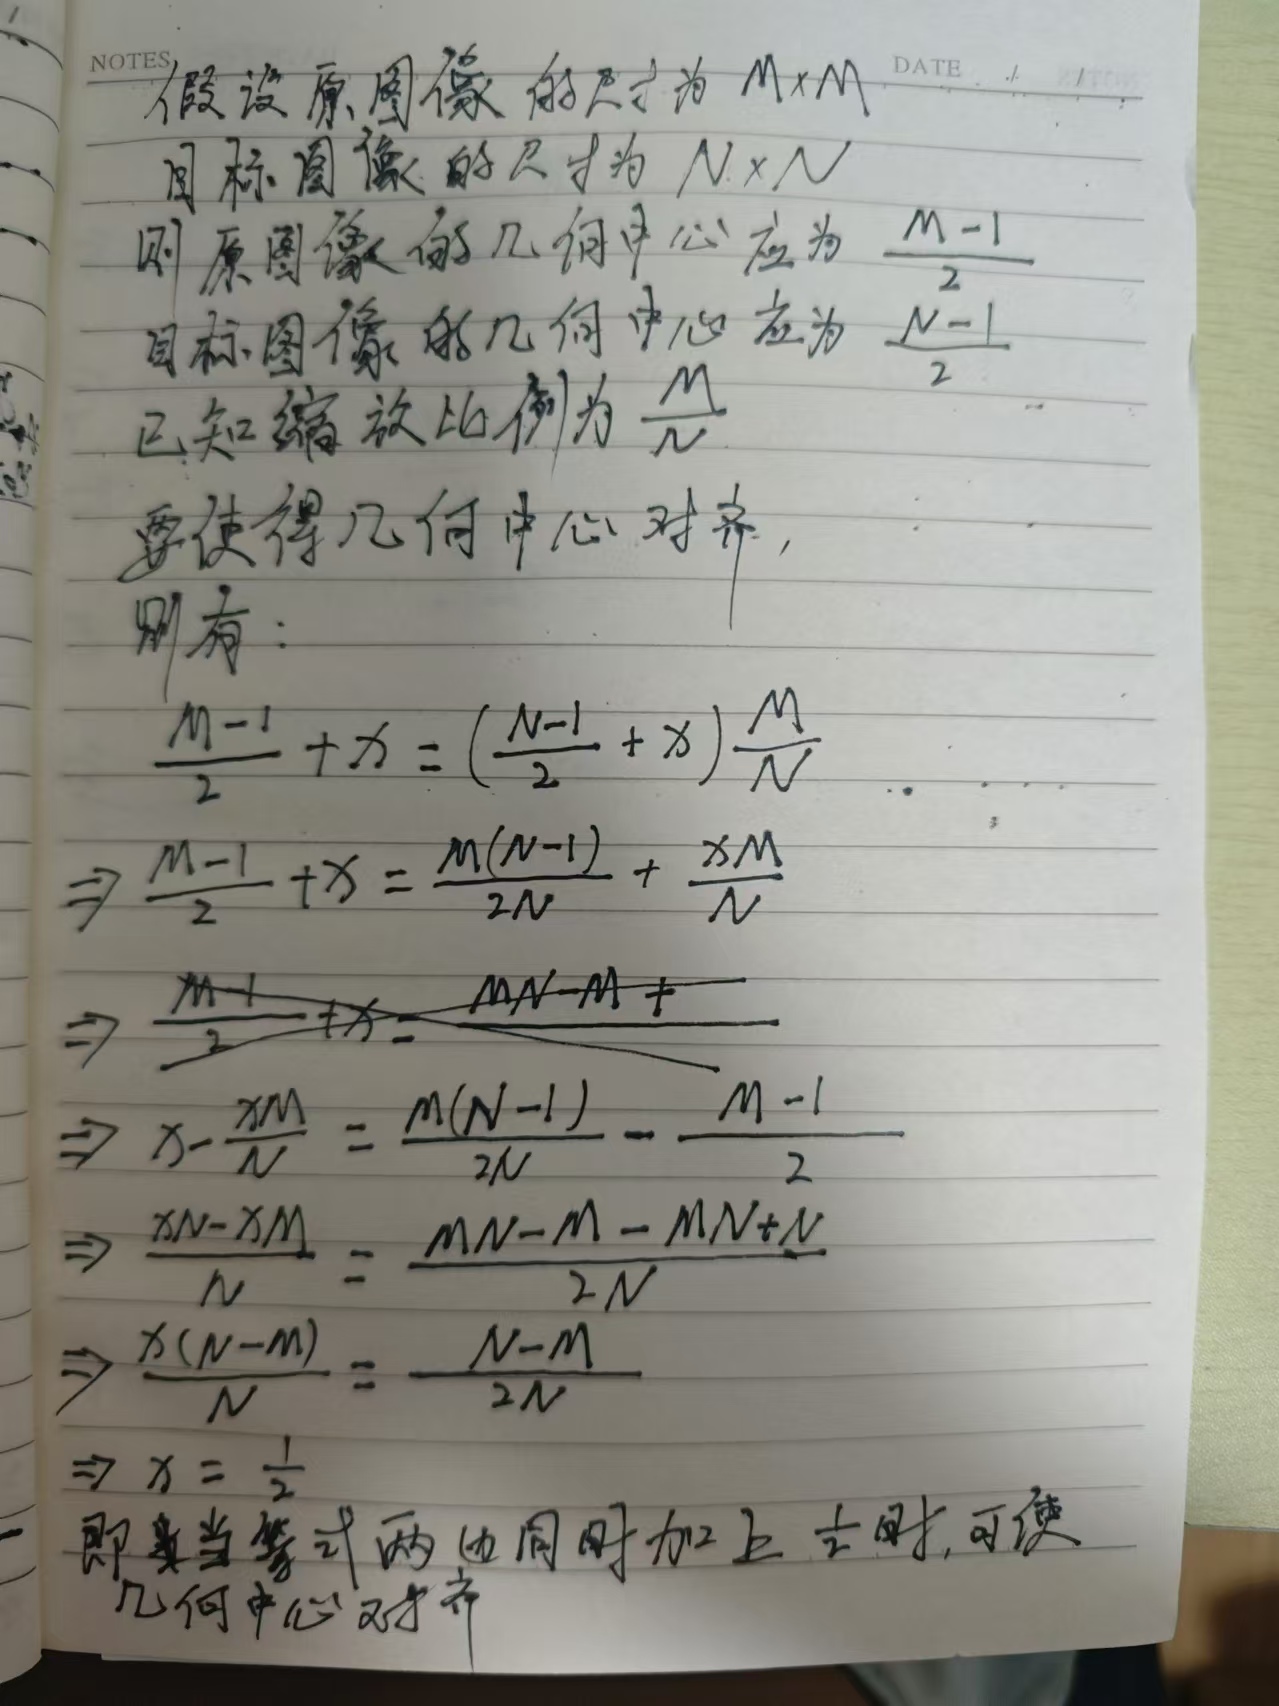 NOTES
DATE
假设原图像的尺寸为 M×M
目标图像的尺寸为 N×N
则原图像的几何中心应为 (M-1)/2
目标图像的几何中心应为 (N-1)/2
已知缩放比例为 M/N
要使得几何中心对齐,
则有:
(M-1)/2 + x = ((N-1)/2 + x) M/N
⇒ (M-1)/2 + x = M(N-1)/2N + xM/N
⇒ (M-1)/2 + x = MN-M+
⇒ x - xM/N = M(N-1)/2N - (M-1)/2
⇒ (xN-xM)/N = (MN-M-MN+N)/2N
⇒ x(N-M)/N = (N-M)/2N
⇒ x = 1/2
即当等式两边同时加上 1/2 时,可使
几何中心对齐